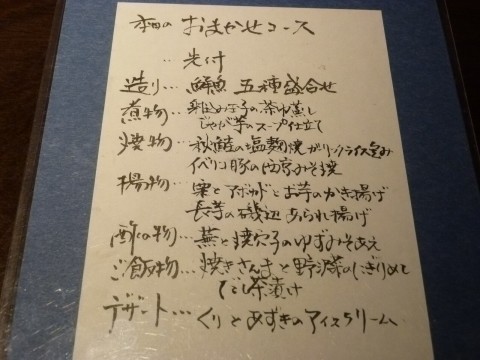 本日の おまかせコース
‥ 先付
造り… 鮮魚 五種盛合せ
煮物… 玉子の茶碗蒸し
じゃが芋のスープ仕立て
焼物… 秋鮭の塩麹焼 ガーリックライス包み
イベリコ豚の西京みそ焼
揚物… 栗とアボカドとお芋のかき揚げ
長芋の磯辺あられ揚げ
酢の物… 蕪と焼穴子のゆずみそあえ
ご飯物… 焼きさんまと野沢菜のにぎりめし
だし茶漬け
デザート… くりとあずきのアイスクリーム